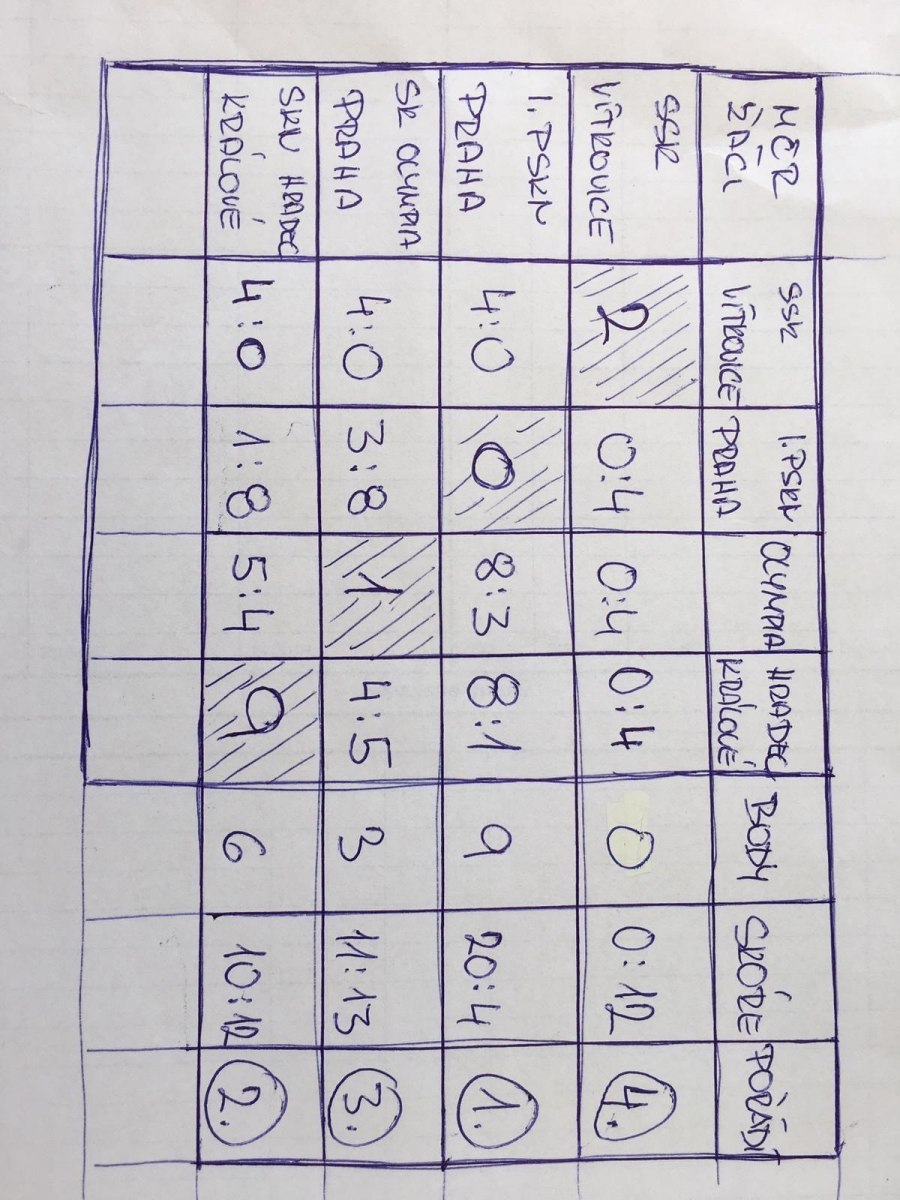 MČR ŽÁCI	SSK VÍTKOVICE	I.PSKN PRAHA	OLYMPIA	HRADEC KRÁLOVÉ	BODY	SKÓRE	POŘADÍ
SSK VÍTKOVICE	2	0:4	0:4	0:4	0	0:12	4.
I.PSKN PRAHA	4:0	0	8:3	8:1	9	20:4	1.
SK OLYMPIA PRAHA	4:0	3:8	1	4:5	3	11:13	3.
SKN HRADEC KRÁLOVÉ	4:0	1:8	5:4	9	6	10:12	2.